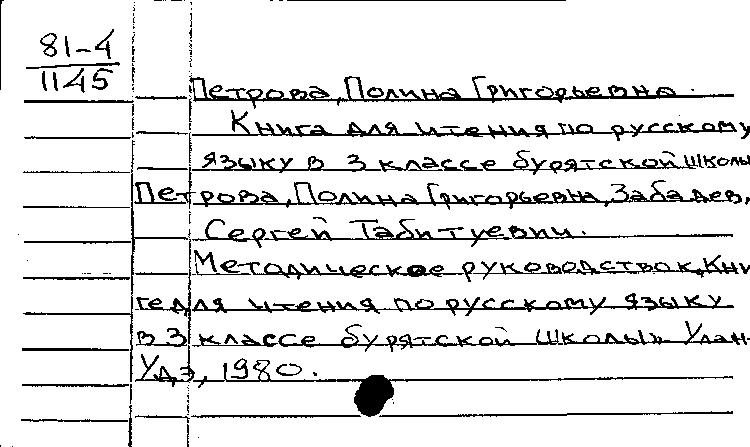 81-4
1145
Петрова, Полина Григорьевна.
Книга для чтения по русскому
языку в 3 классе бурятской школы
Петрова, Полина Григорьевна, Забадаев,
Сергей Табитуевич.
Методическое руководство к "Кни
ге для чтения по русскому языку
в 3 классе бурятской школы" Улан-
Удэ, 1980.